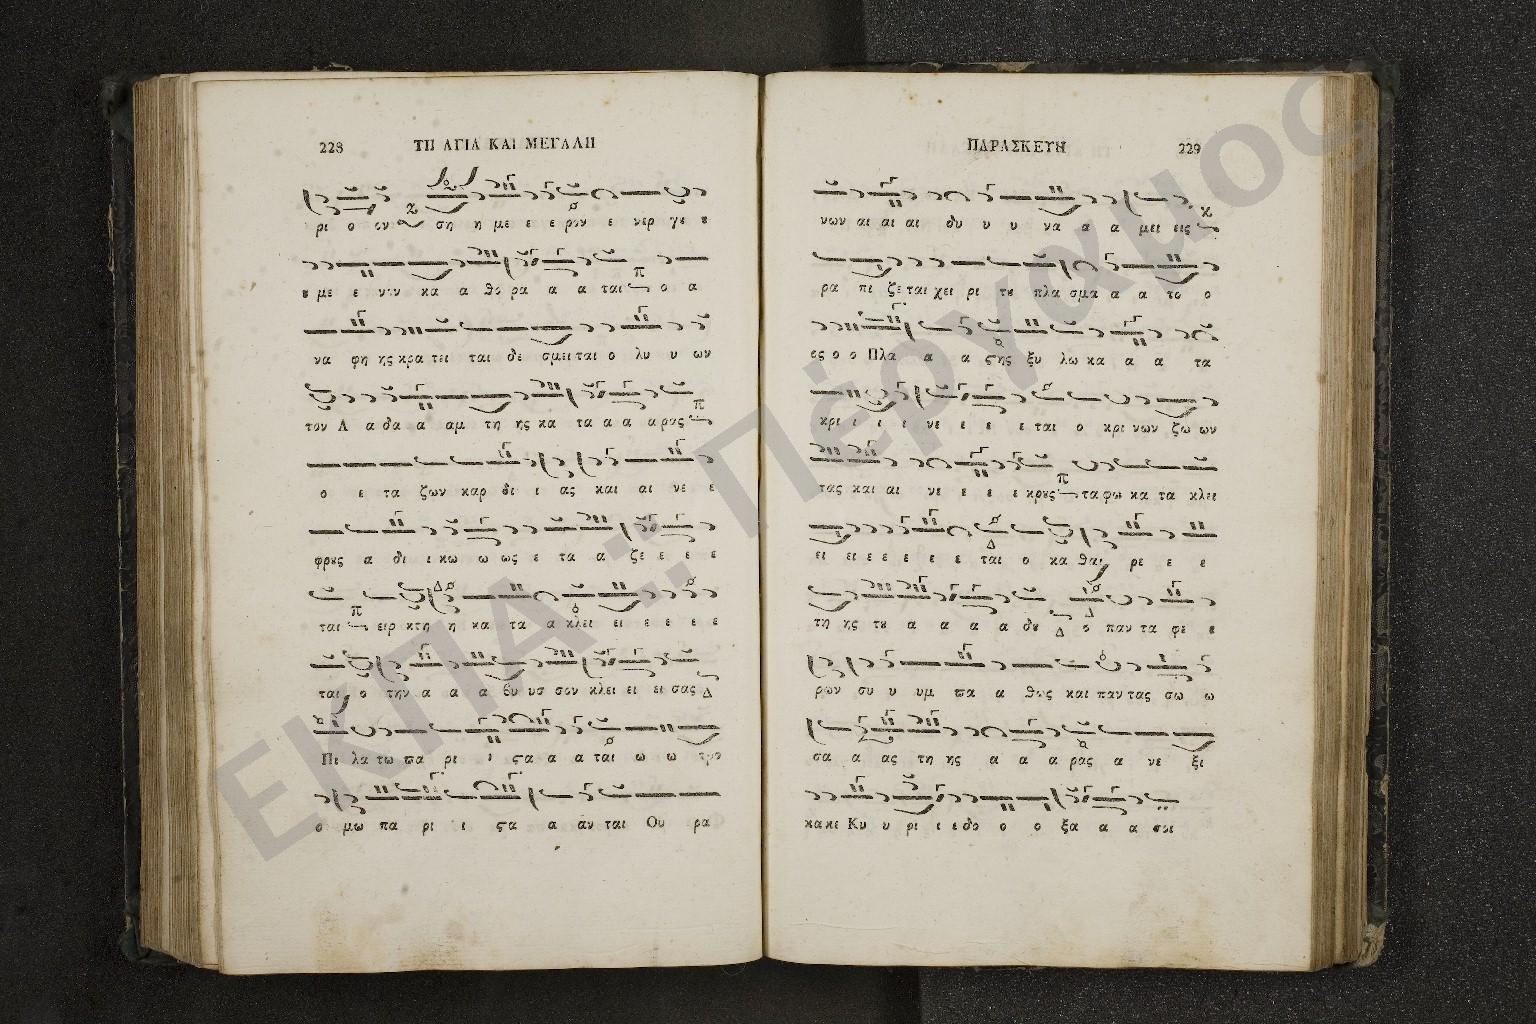 228 ΤΗ ΑΓΙΑ ΚΑΙ ΜΕΓΑΛΗ
ρι ο ον ση η με ε ε ρον ε νερ γε ȣ
ȣ με ε νον κα α θο ρα α α ται ο α
να φη ης κρα τει ται δε σμει ται ο λυ υ ων
τον Α α δα α αμ τη ης κα τα α α α ρας
ο ε τα ζων καρ δι ι ας και αι νε ε
φρȣς α δι ι κω ω ως ε τα α ζε ε ε ε
ται ειρ κτη η κα τα α κλει ει ε ε ε ε
ται ο την α α α βυ υσ σον κλει ει ει σας
Πι λα τω πα ρι ι ϛα α α ται ω ω τρο
ο μω πα ρι ι ϛα α αν ται Ου ρα
ΠΑΡΑΣΚΕΥΗ 229
νων αι αι αι δυ υ υ να α α μει εις
ρα πι ζε ται χει ρι τȣ πλα σμα α α το ο
ος ο ο Πλα α α ϛης ξυ λω κα α α τα
κρι ι ι ι νε ε ε ε ται ο κρι νων ζω ων
τας και αι νε ε ε ε κρȣς τα φω κα τα κλει
ει ει ε ε ε ε ε ε ται ο κα θαι ρε ε ε
τη ης τȣ α α α α δȣ ο παν τα φε ε
ρων συ υ υμ πα α θως και παν τας σω ω
σα α ας τη ης α α α ρας α νε ξι
κα κε Κυ υ ρι ι ε δο ο ο ξα α α σοι
ΕΚΠΑ :: Πέργαμος